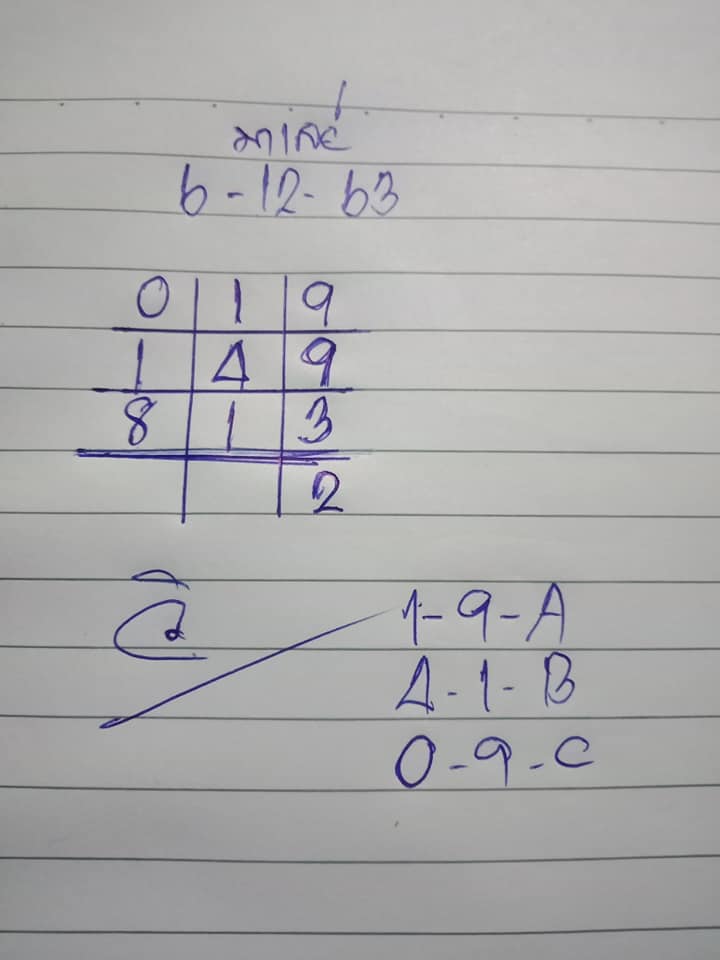 มาเลย์
6-12-63
0 1 9
1 4 9
8 1 3
2
1-9-A
4-1-B
0-9-C